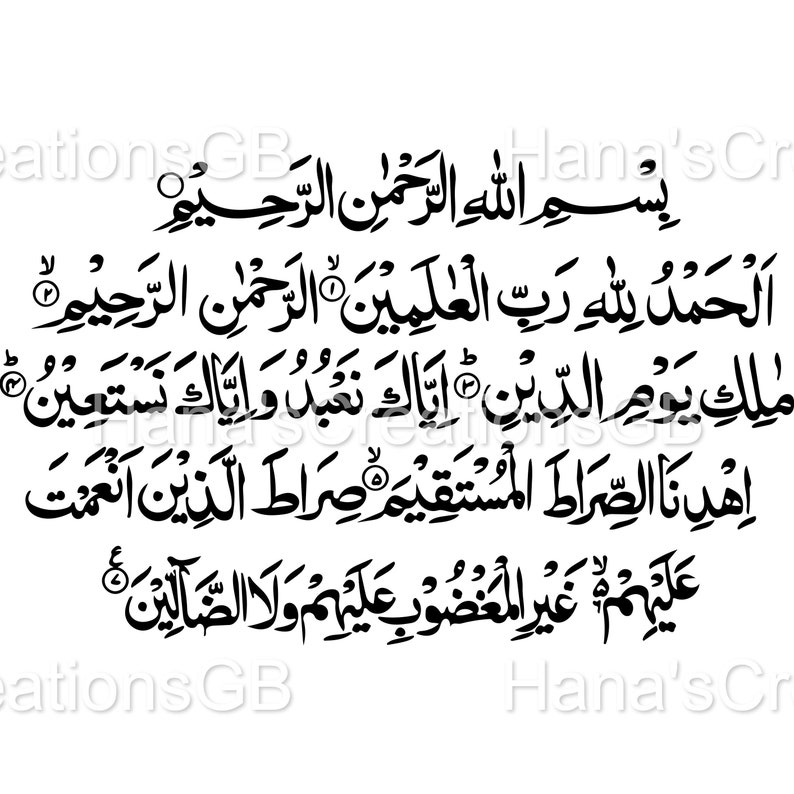 eationsGB Hana'sCre
بِسْمِ اللهِ الرَّحْمٰنِ الرَّحِيْمِ ○
اَلْحَمْدُ لِلّٰهِ رَبِّ الْعٰلَمِيْنَ ۙ﴿۱﴾ الرَّحْمٰنِ الرَّحِيْمِ ۙ﴿۲﴾
مٰلِكِ يَوْمِ الدِّيْنِ ؕ﴿۳﴾ اِيَّاكَ نَعْبُدُ وَ اِيَّاكَ نَسْتَعِيْنُ ؕ﴿۴﴾
Hana'sCreationsGB
اِهْدِنَا الصِّرَاطَ الْمُسْتَقِيْمَ ۙ﴿۵﴾ صِرَاطَ الَّذِيْنَ اَنْعَمْتَ
عَلَيْهِمْ ۙ۬ۙ غَيْرِ الْمَغْضُوْبِ عَلَيْهِمْ وَلَا الضَّآلِّيْنَ ﴿۷﴾ع
eationsGB Hana'sCre